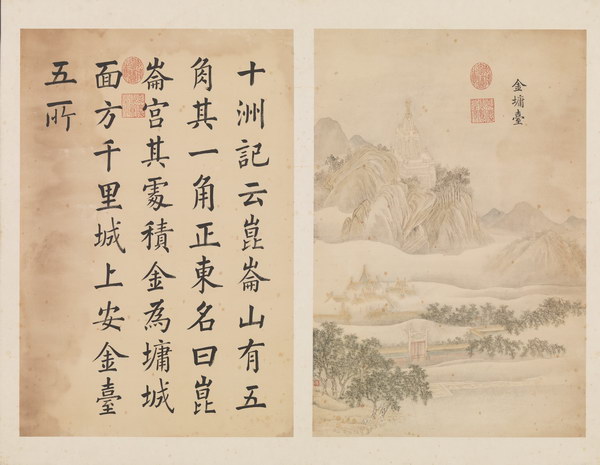 金墉臺
十洲記云崑崙山有五
角其一角正東名曰崑
崙宮其處積金為墉城
面方千里城上安金臺
五所